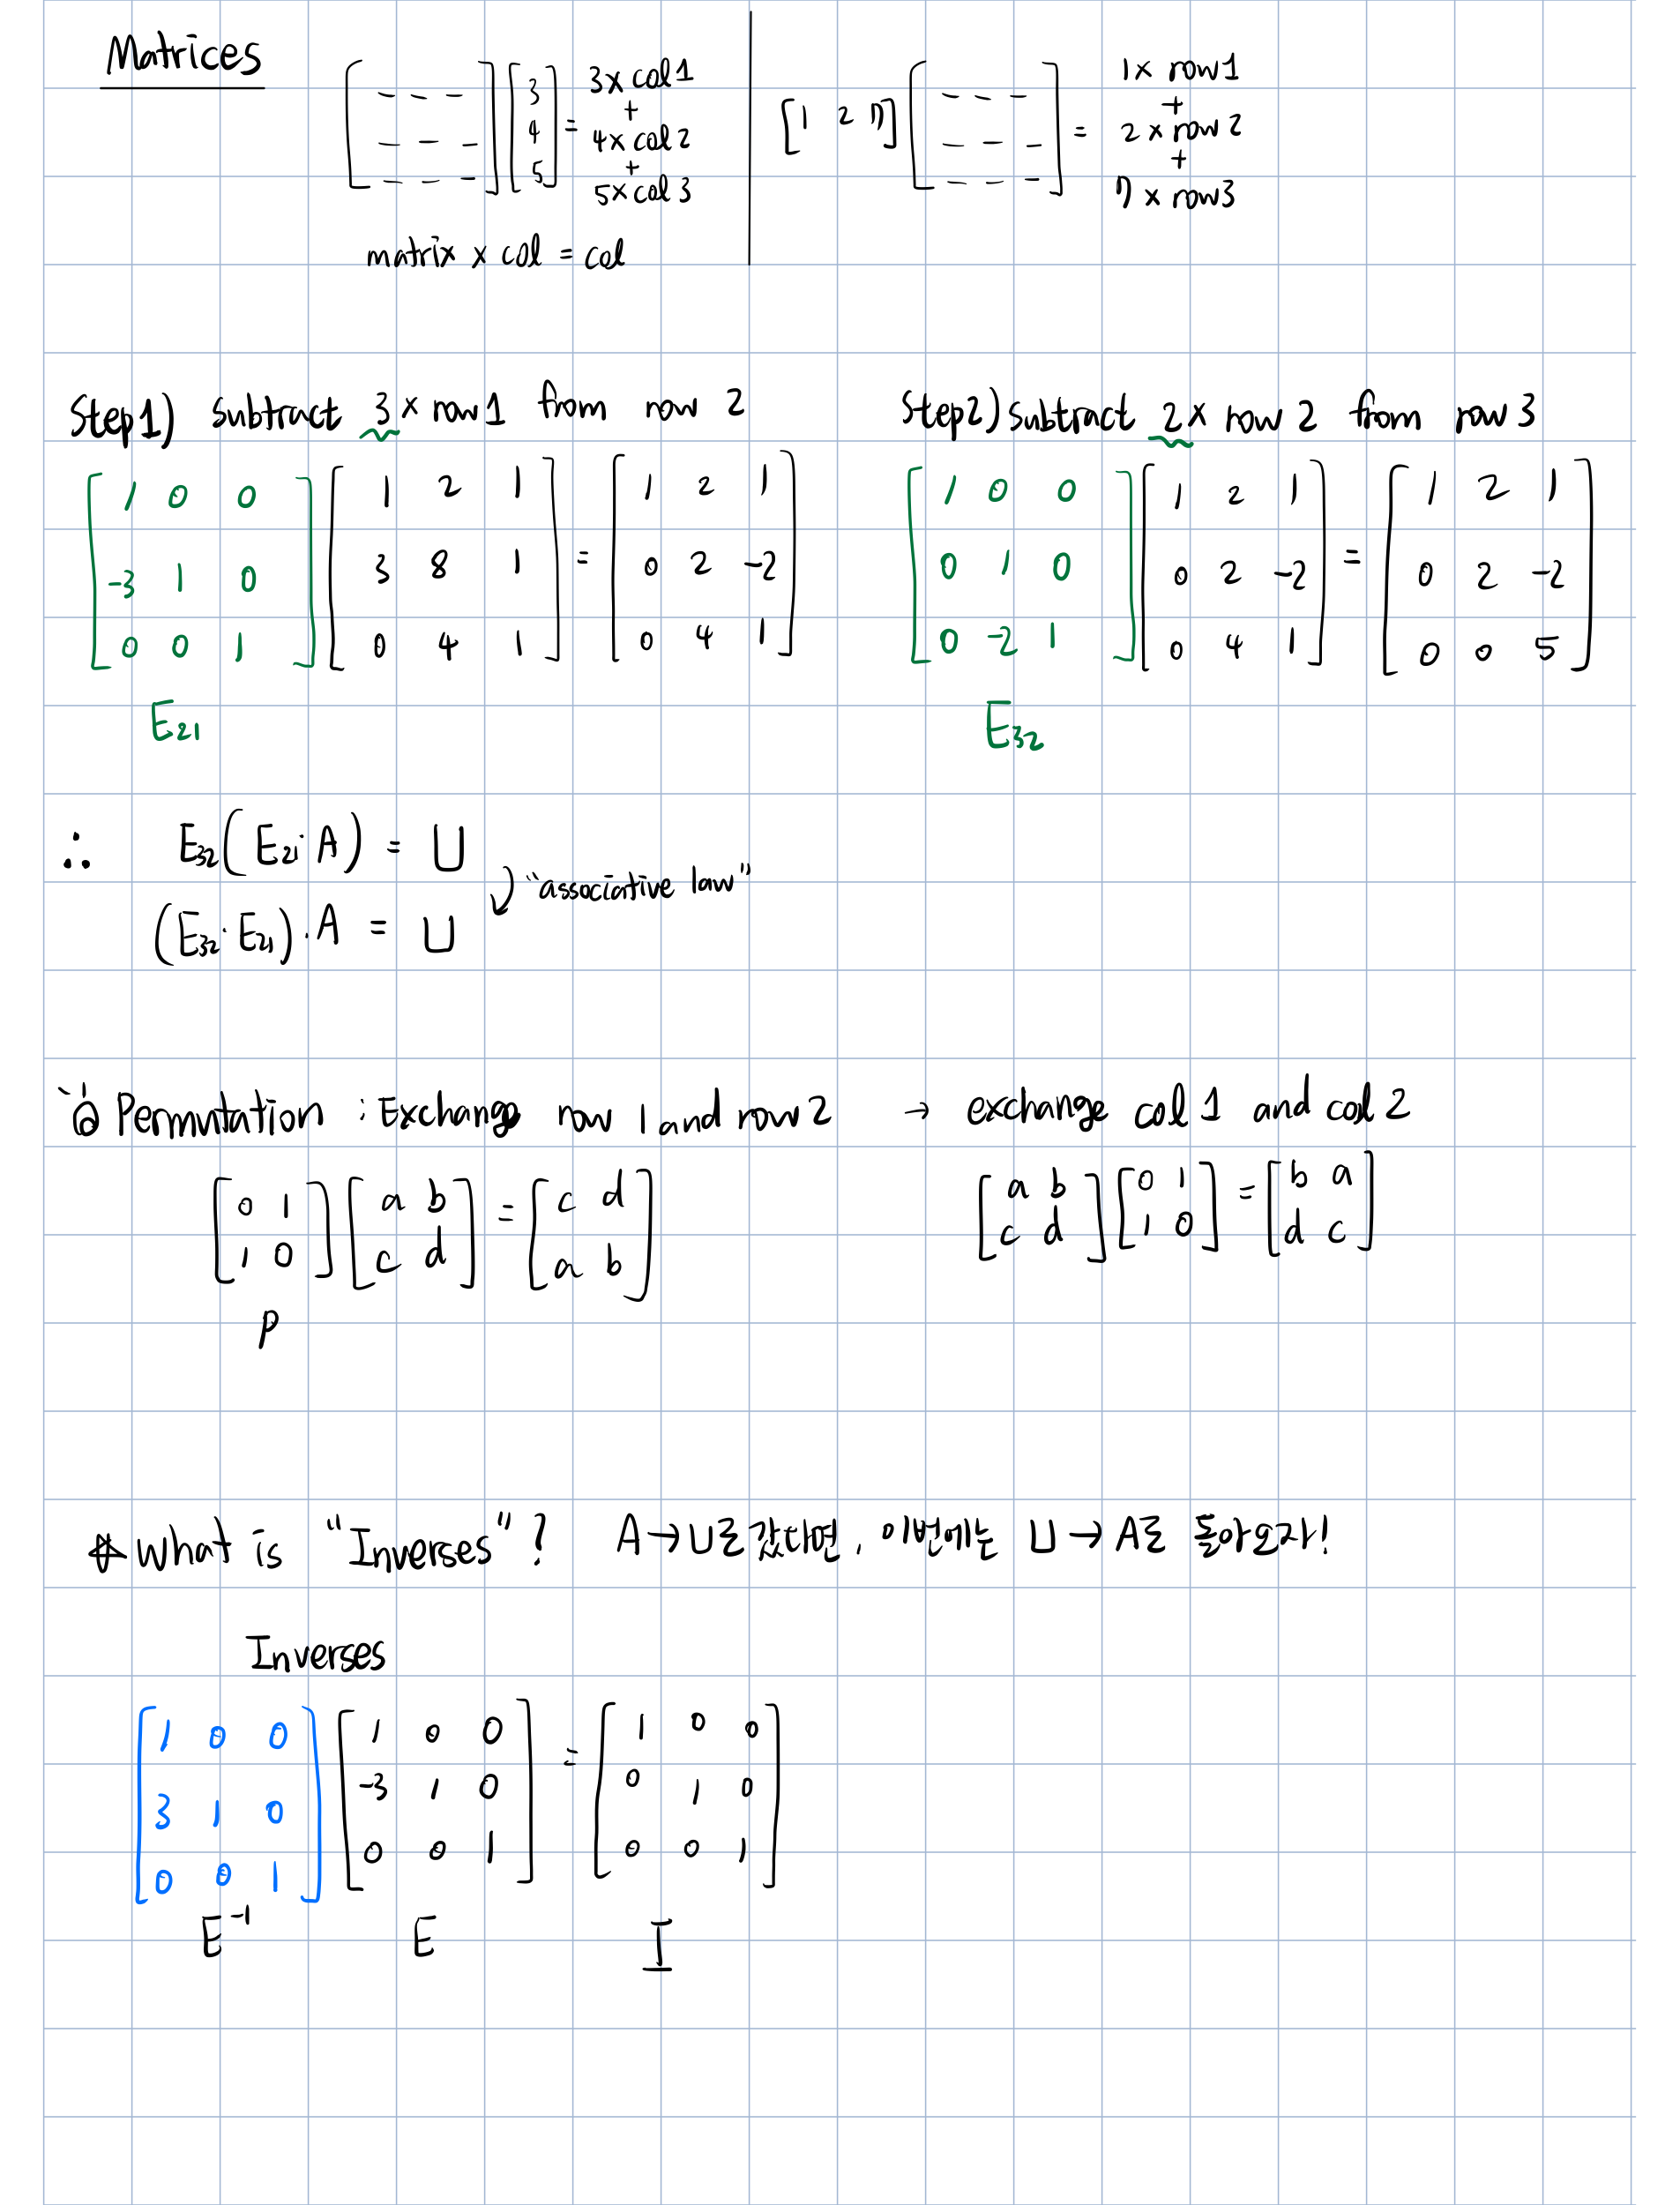 Matrices
[ - - -
- - -
- - - ] [ 3
4
5 ] = 3 x col 1
+
4 x col 2
+
5 x col 3
matrix x col = col
[ 1 2 7 ] [ - - -
- - -
- - - ] = 1 x row 1
+
2 x row 2
+
7 x row 3
Step 1) subtract 3 x row 1 from row 2
[ 1 0 0
-3 1 0
0 0 1 ] [ 1 2 1
3 8 1
0 4 1 ] = [ 1 2 1
0 2 -2
0 4 1 ]
E21
Step 2) subtract 2 x row 2 from row 3
[ 1 0 0
0 1 0
0 -2 1 ] [ 1 2 1
0 2 -2
0 4 1 ] = [ 1 2 1
0 2 -2
0 0 5 ]
E32
∴ E32 ( E21 · A ) = U
( E32 · E21 ) · A = U "associative law"
Permutation : Exchange row 1 and row 2 → exchange col 1 and col 2
[ 0 1
1 0 ] [ a b
c d ] = [ c d
a b ]
P
[ a b
c d ] [ 0 1
1 0 ] = [ b a
d c ]
☆ What is "Inverses" ? A → U로 갔다면, 이번에는 U → A로 돌아오자!
Inverses
[ 1 0 0
3 1 0
0 0 1 ] [ 1 0 0
-3 1 0
0 0 1 ] = [ 1 0 0
0 1 0
0 0 1 ]
E⁻¹ E I